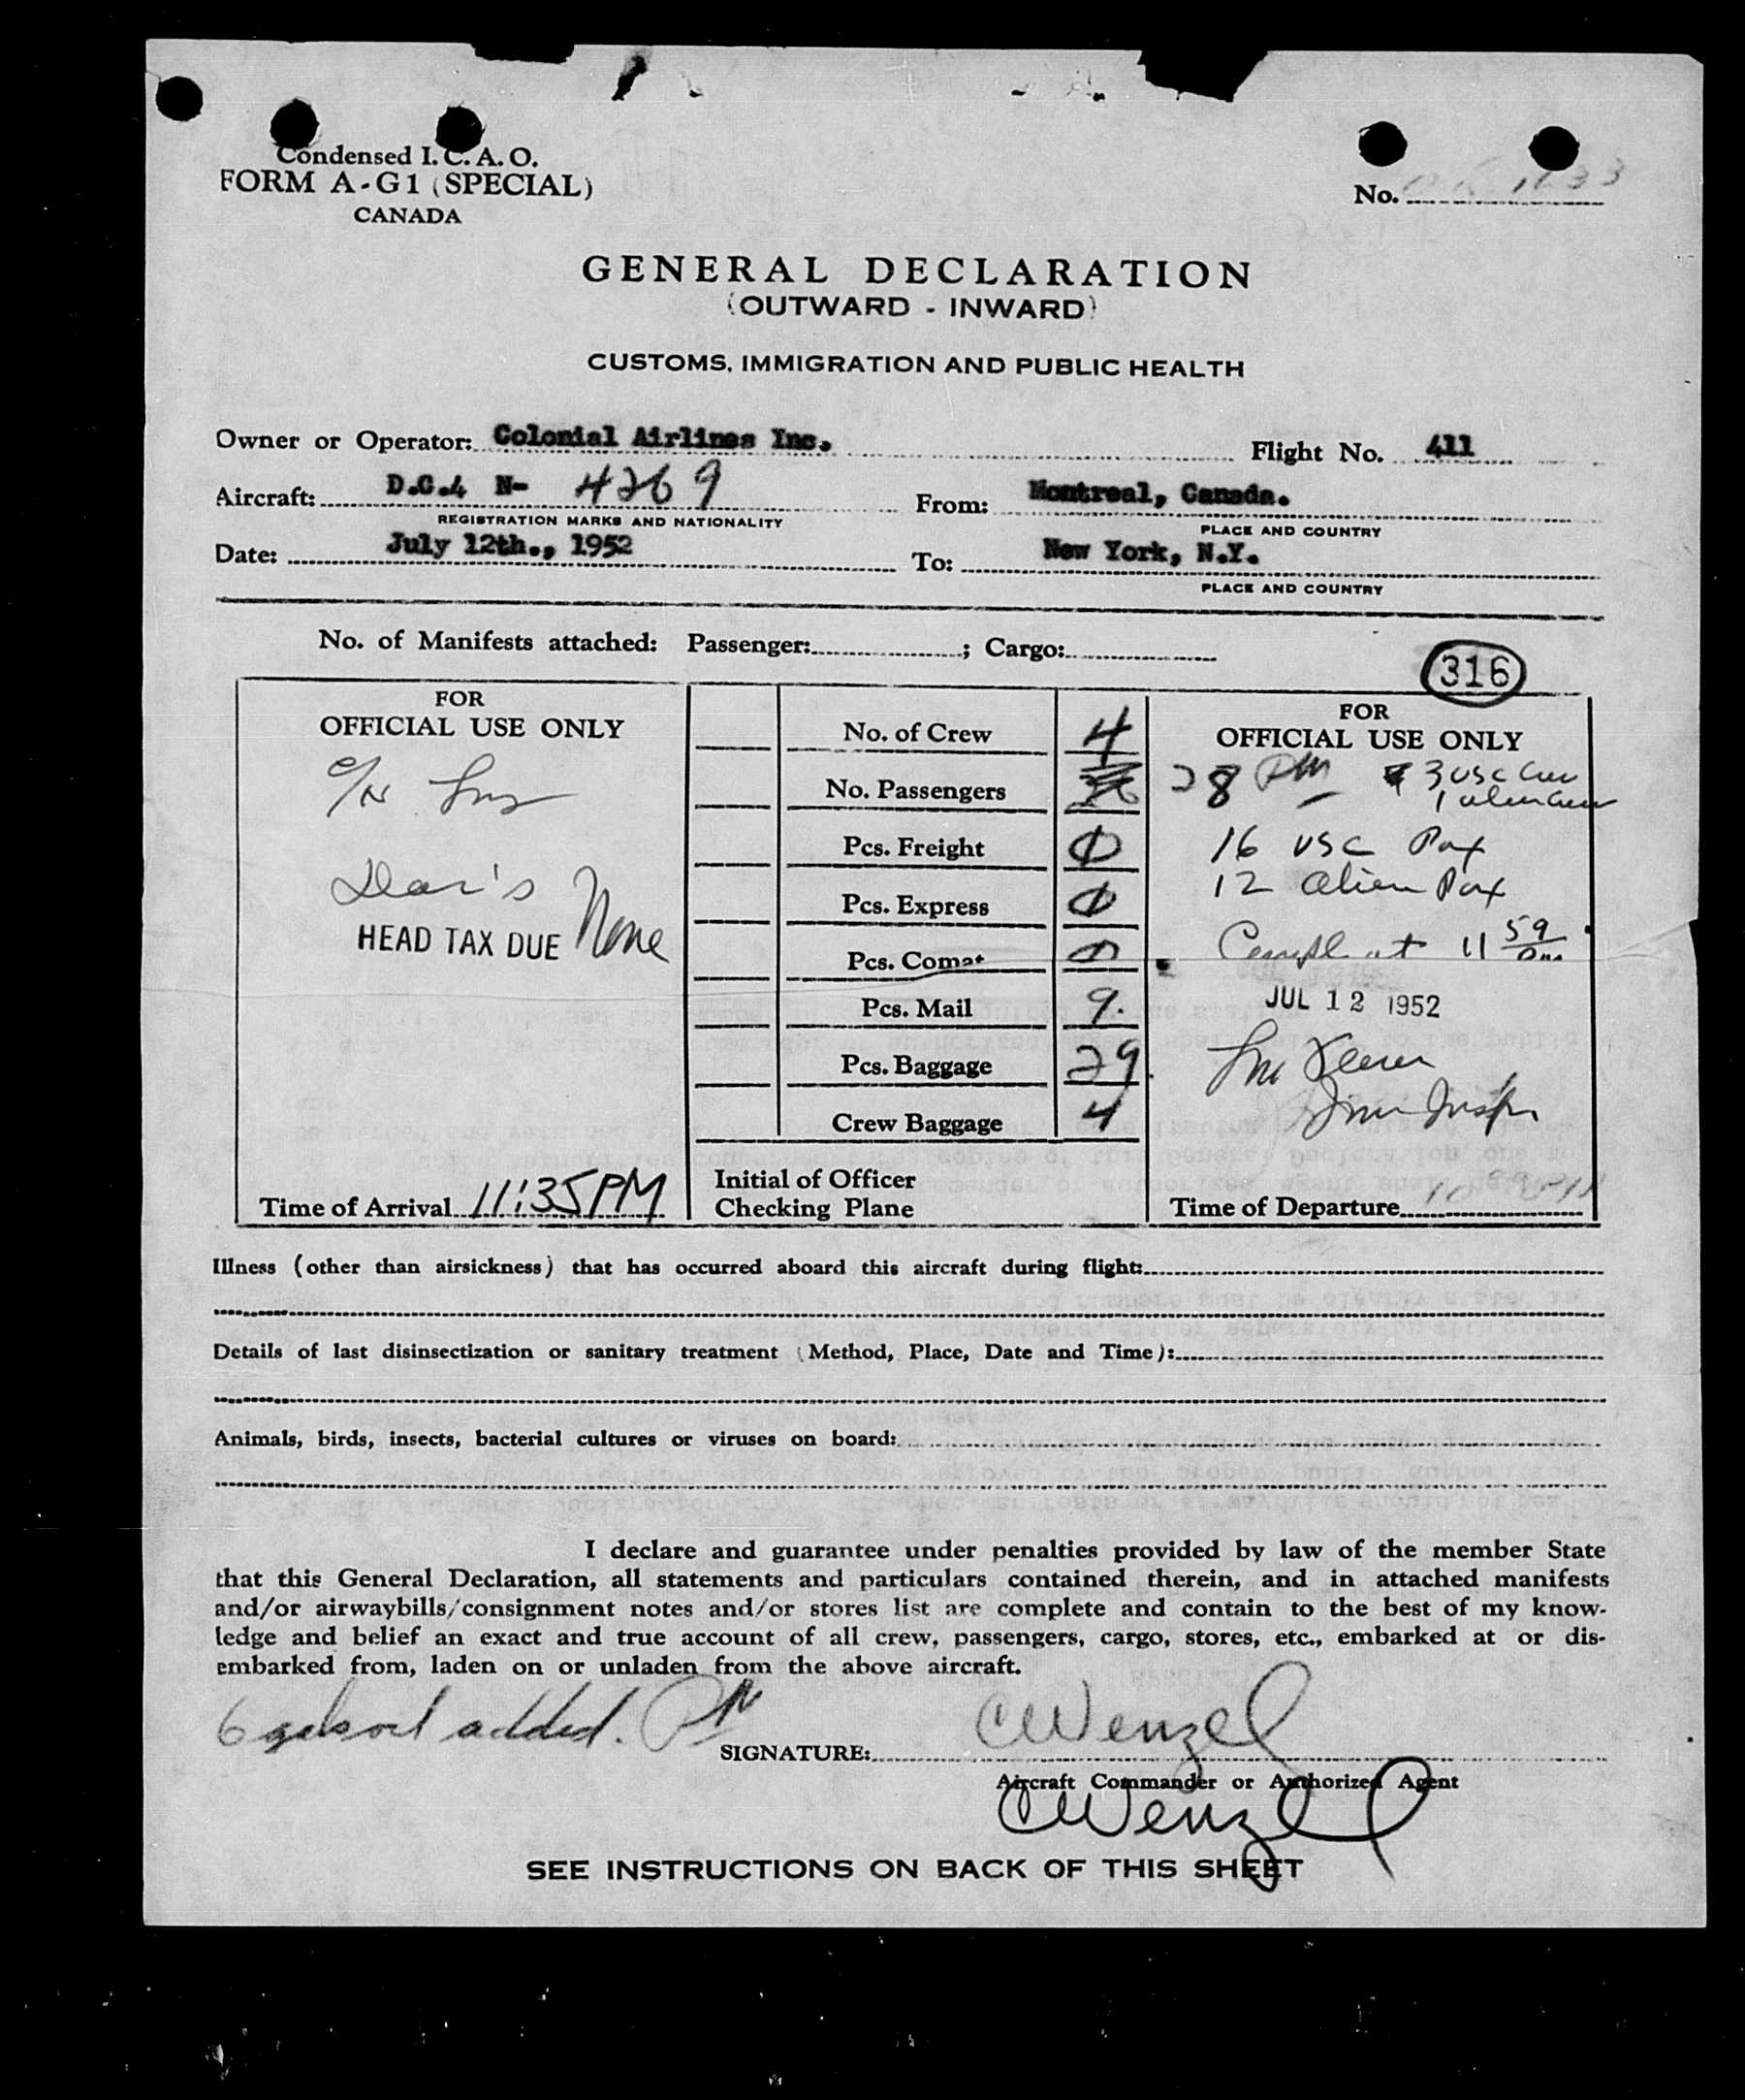 Condensed I. C. A. O.
FORM A-G1 (SPECIAL)
CANADA
No. 1633
GENERAL DECLARATION
(OUTWARD - INWARD)
CUSTOMS, IMMIGRATION AND PUBLIC HEALTH
Owner or Operator: Colonial Airlines Inc. Flight No. 411
Aircraft: D.C.4 N- 4269 From: Montreal, Canada.
REGISTRATION MARKS AND NATIONALITY PLACE AND COUNTRY
Date: July 12th., 1952 To: New York, N.Y.
PLACE AND COUNTRY
No. of Manifests attached: Passenger: ; Cargo:
316
FOR
OFFICIAL USE ONLY
HEAD TAX DUE None
Time of Arrival 11:35PM
No. of Crew 4
No. Passengers
Pcs. Freight 0
Pcs. Express 0
Pcs. Comat 0
Pcs. Mail 9.
Pcs. Baggage 29.
Crew Baggage 4
Initial of Officer
Checking Plane
FOR
OFFICIAL USE ONLY
28 3 USC Crew
1 alien Crew
16 USC Pax
12 Alien Pax
Compl at 11 59 pm
JUL 12 1952
Imm Inspr
Time of Departure
Illness (other than airsickness) that has occurred aboard this aircraft during flight:
Details of last disinsectization or sanitary treatment (Method, Place, Date and Time):
Animals, birds, insects, bacterial cultures or viruses on board:
I declare and guarantee under penalties provided by law of the member State
that this General Declaration, all statements and particulars contained therein, and in attached manifests
and/or airwaybills/consignment notes and/or stores list are complete and contain to the best of my know-
ledge and belief an exact and true account of all crew, passengers, cargo, stores, etc., embarked at or dis-
embarked from, laden on or unladen from the above aircraft.
6 gals oil added.
SIGNATURE: CWenzel
Aircraft Commander or Authorized Agent
CWenzel
SEE INSTRUCTIONS ON BACK OF THIS SHEET